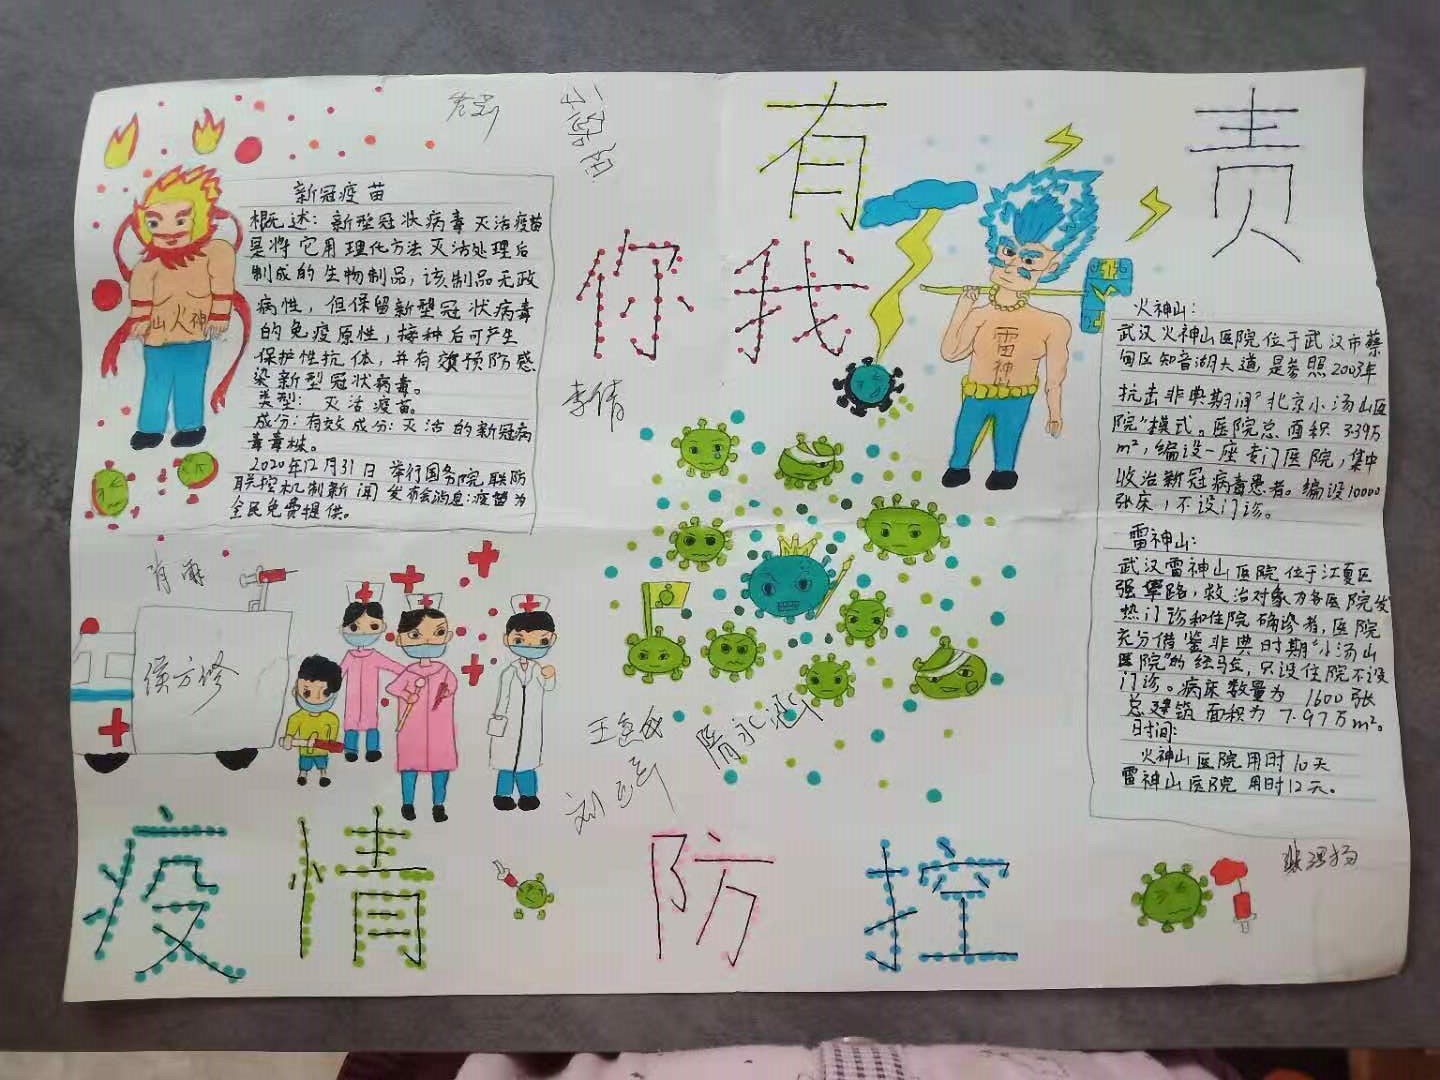 有
责
你 我
新冠疫苗
概述：新型冠状病毒灭活疫苗
是将它用理化方法灭活处理后
制成的生物制品，该制品无致
病性，但保留新型冠状病毒
的免疫原性，接种后可产生
保护性抗体，并有效预防感
染新型冠状病毒。
类型：灭活疫苗。
成分：有效成分：灭活的新冠病
毒毒株。
2020年12月31日举行国务院联防
联控机制新闻发布会消息：疫苗为
全民免费提供。
山火神
雷
神
李倩
火神山：
武汉火神山医院位于武汉市蔡
甸区知音湖大道是参照2003年
抗击非典期间"北京小汤山医
院"模式。医院总面积3.39万
m²，编设一座专门医院，集中
收治新冠病毒患者。编设10000
张床，不设门诊。
雷神山：
武汉雷神山医院位于江夏区
强军路，救治对象为各医院发
热门诊和住院确诊者，医院
充分借鉴非典时期"小汤山
医院"的经验，只设住院不设
门诊。病床数量为 1600张
总建筑面积为7.97万m²。
时间：
火神山医院用时10天
雷神山医院 用时12天。
疫 情 防 控